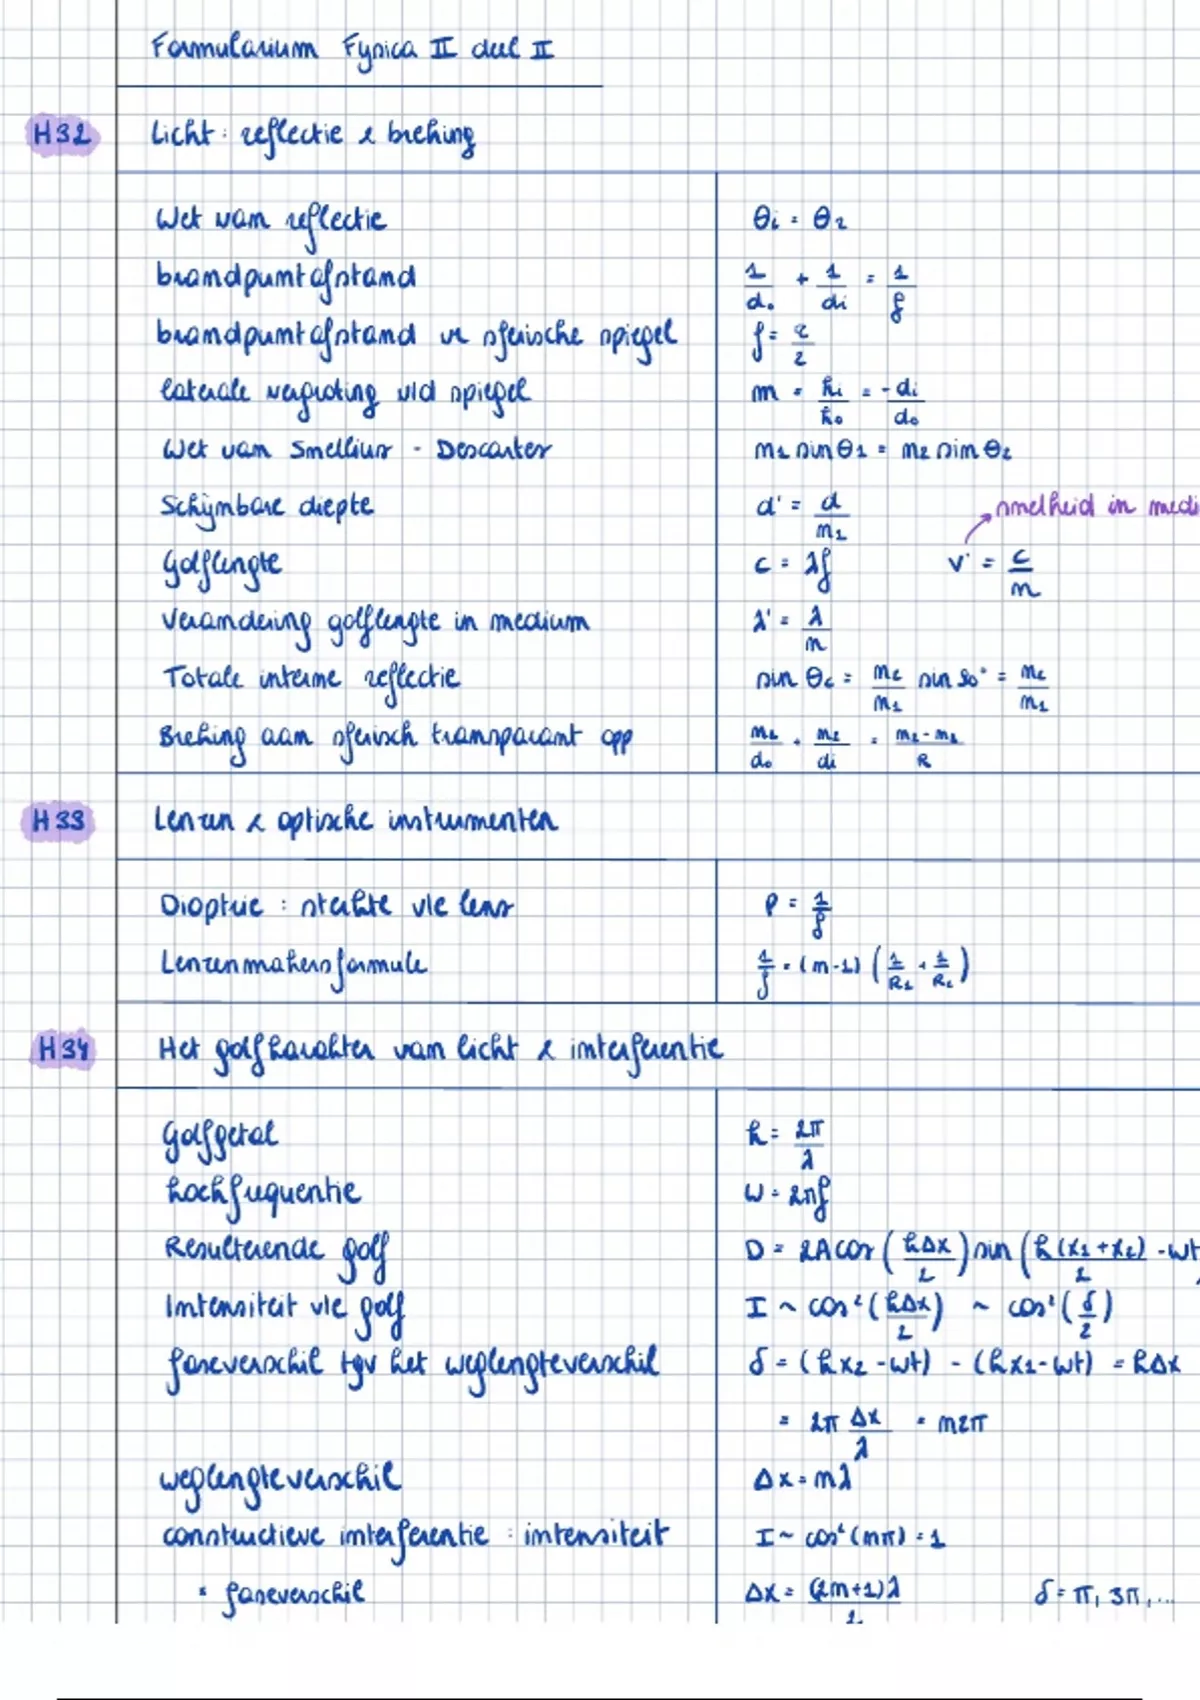 Formularium Fysica II deel II
H32 Licht: reflectie & breking
Wet van reflectie θi = θ2
brandpuntafstand 1/do + 1/di = 1/f
brandpuntafstand ve sferische spiegel f = r/2
laterale vergroting v/d spiegel m = hi/ho = -di/do
Wet van Snellius - Descartes n1 sinθ1 = n2 sinθ2
Schijnbare diepte d' = d/n1 snelheid in medi
Golflengte c = λf v = c/n
Verandering golflengte in medium λ' = λ/n
Totale interne reflectie sin θc = n2/n1 sin 90° = n2/n1
Breking aan sferisch transparant opp n1/do + n2/di = n2-n1/R
H33 Lenzen & optische instrumenten
Dioptrie: sterkte v/e lens P = 1/f
Lenzenmakersformule 1/f = (n-1) (1/R1 + 1/R2)
H34 Het golfkarakter van licht & interferentie
Golfgetal k = 2π/λ
hoekfrequentie ω = 2πf
Resulterende golf D = 2A cos (kΔx/2) sin (k(x1+x2)/2 - ωt
Intensiteit v/e golf I ~ cos²(kΔx/2) ~ cos²(δ/2)
faseverschil tgv het weglengteverschil δ = (kx2 - ωt) - (kx1 - ωt) = kΔx
= 2π Δx/λ = m2π
weglengteverschil Δx = mλ
constructieve interferentie: intensiteit I ~ cos²(mπ) = 1
" faseverschil Δx = (2m+1)λ/2 δ = π, 3π, ...